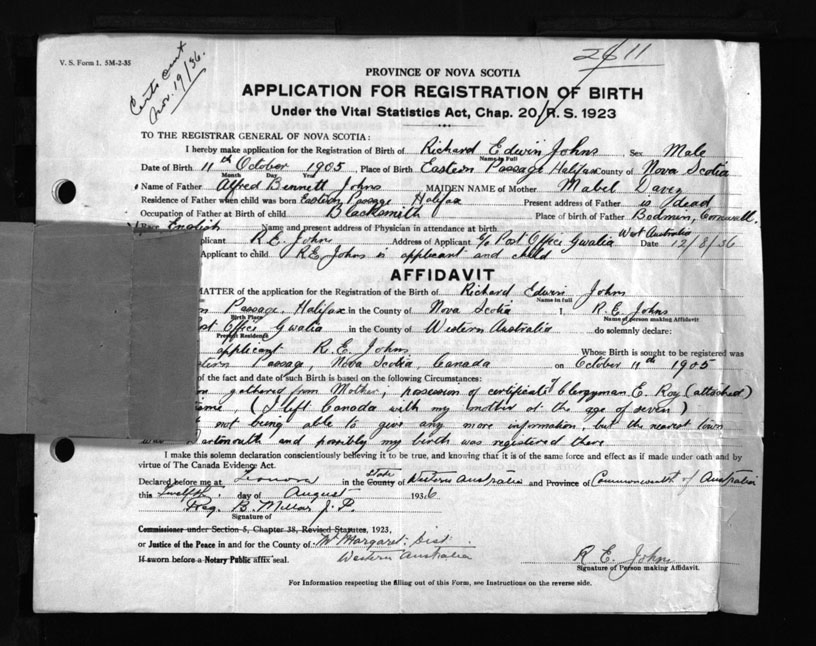 V. S. Form 1. 5M-2-35
Certs sent
Nov. 19/36.
2611
PROVINCE OF NOVA SCOTIA
APPLICATION FOR REGISTRATION OF BIRTH
Under the Vital Statistics Act, Chap. 20, R. S. 1923
TO THE REGISTRAR GENERAL OF NOVA SCOTIA:
I hereby make application for the Registration of Birth of Richard Edwin Johns Sex Male
Name in Full
Date of Birth 11th October 1905 Place of Birth Eastern Passage Halifax County of Nova Scotia
Month Day Year
Name of Father Alfred Bennett Johns MAIDEN NAME of Mother Mabel Davey
Residence of Father when child was born Eastern Passage Halifax Present address of Father is dead
Occupation of Father at Birth of child Blacksmith Place of birth of Father Bodmin, Cornwall.
Race English Name and present address of Physician in attendance at birth
plicant R.E. Johns Address of Applicant c/o Post Office Gwalia West Australia Date 12/8/36
Applicant to child R.E. Johns is applicant and child
AFFIDAVIT
MATTER of the application for the Registration of the Birth of Richard Edwin Johns
Name in full
n Passage, Halifax in the County of Nova Scotia I. R. E. Johns
Birth Place Name of person making Affidavit
ost Office Gwalia in the County of Western Australia do solemnly declare:
Present Residence
applicant R. E. Johns Whose Birth is sought to be registered was
tern Passage, Nova Scotia, Canada on October 11th 1905
of the fact and date of such Birth is based on the following Circumstances:
gathered from Mother, possession of certificate of Clergyman E. Roy (attached)
(I left Canada with my mother at the age of seven)
not being able to give any more information, but the nearest town
was Dartmouth and possibly my birth was registered there
I make this solemn declaration conscientiously believing it to be true, and knowing that it is of the same force and effect as if made under oath and by
virtue of The Canada Evidence Act.
Declared before me at Leonora in the County of State Western Australia and Province of Commonwealth of Australia
this twelfth day of August 1936
Reg. B. Millar J. P.
Signature of
Commissioner under Section 5, Chapter 38, Revised Statutes, 1923,
or Justice of the Peace in and for the County of Mt Margaret Dist.
Western Australia
If sworn before a Notary Public affix seal.
R E Johns
Signature of Person making Affidavit.
For Information respecting the filling out of this Form, see Instructions on the reverse side.